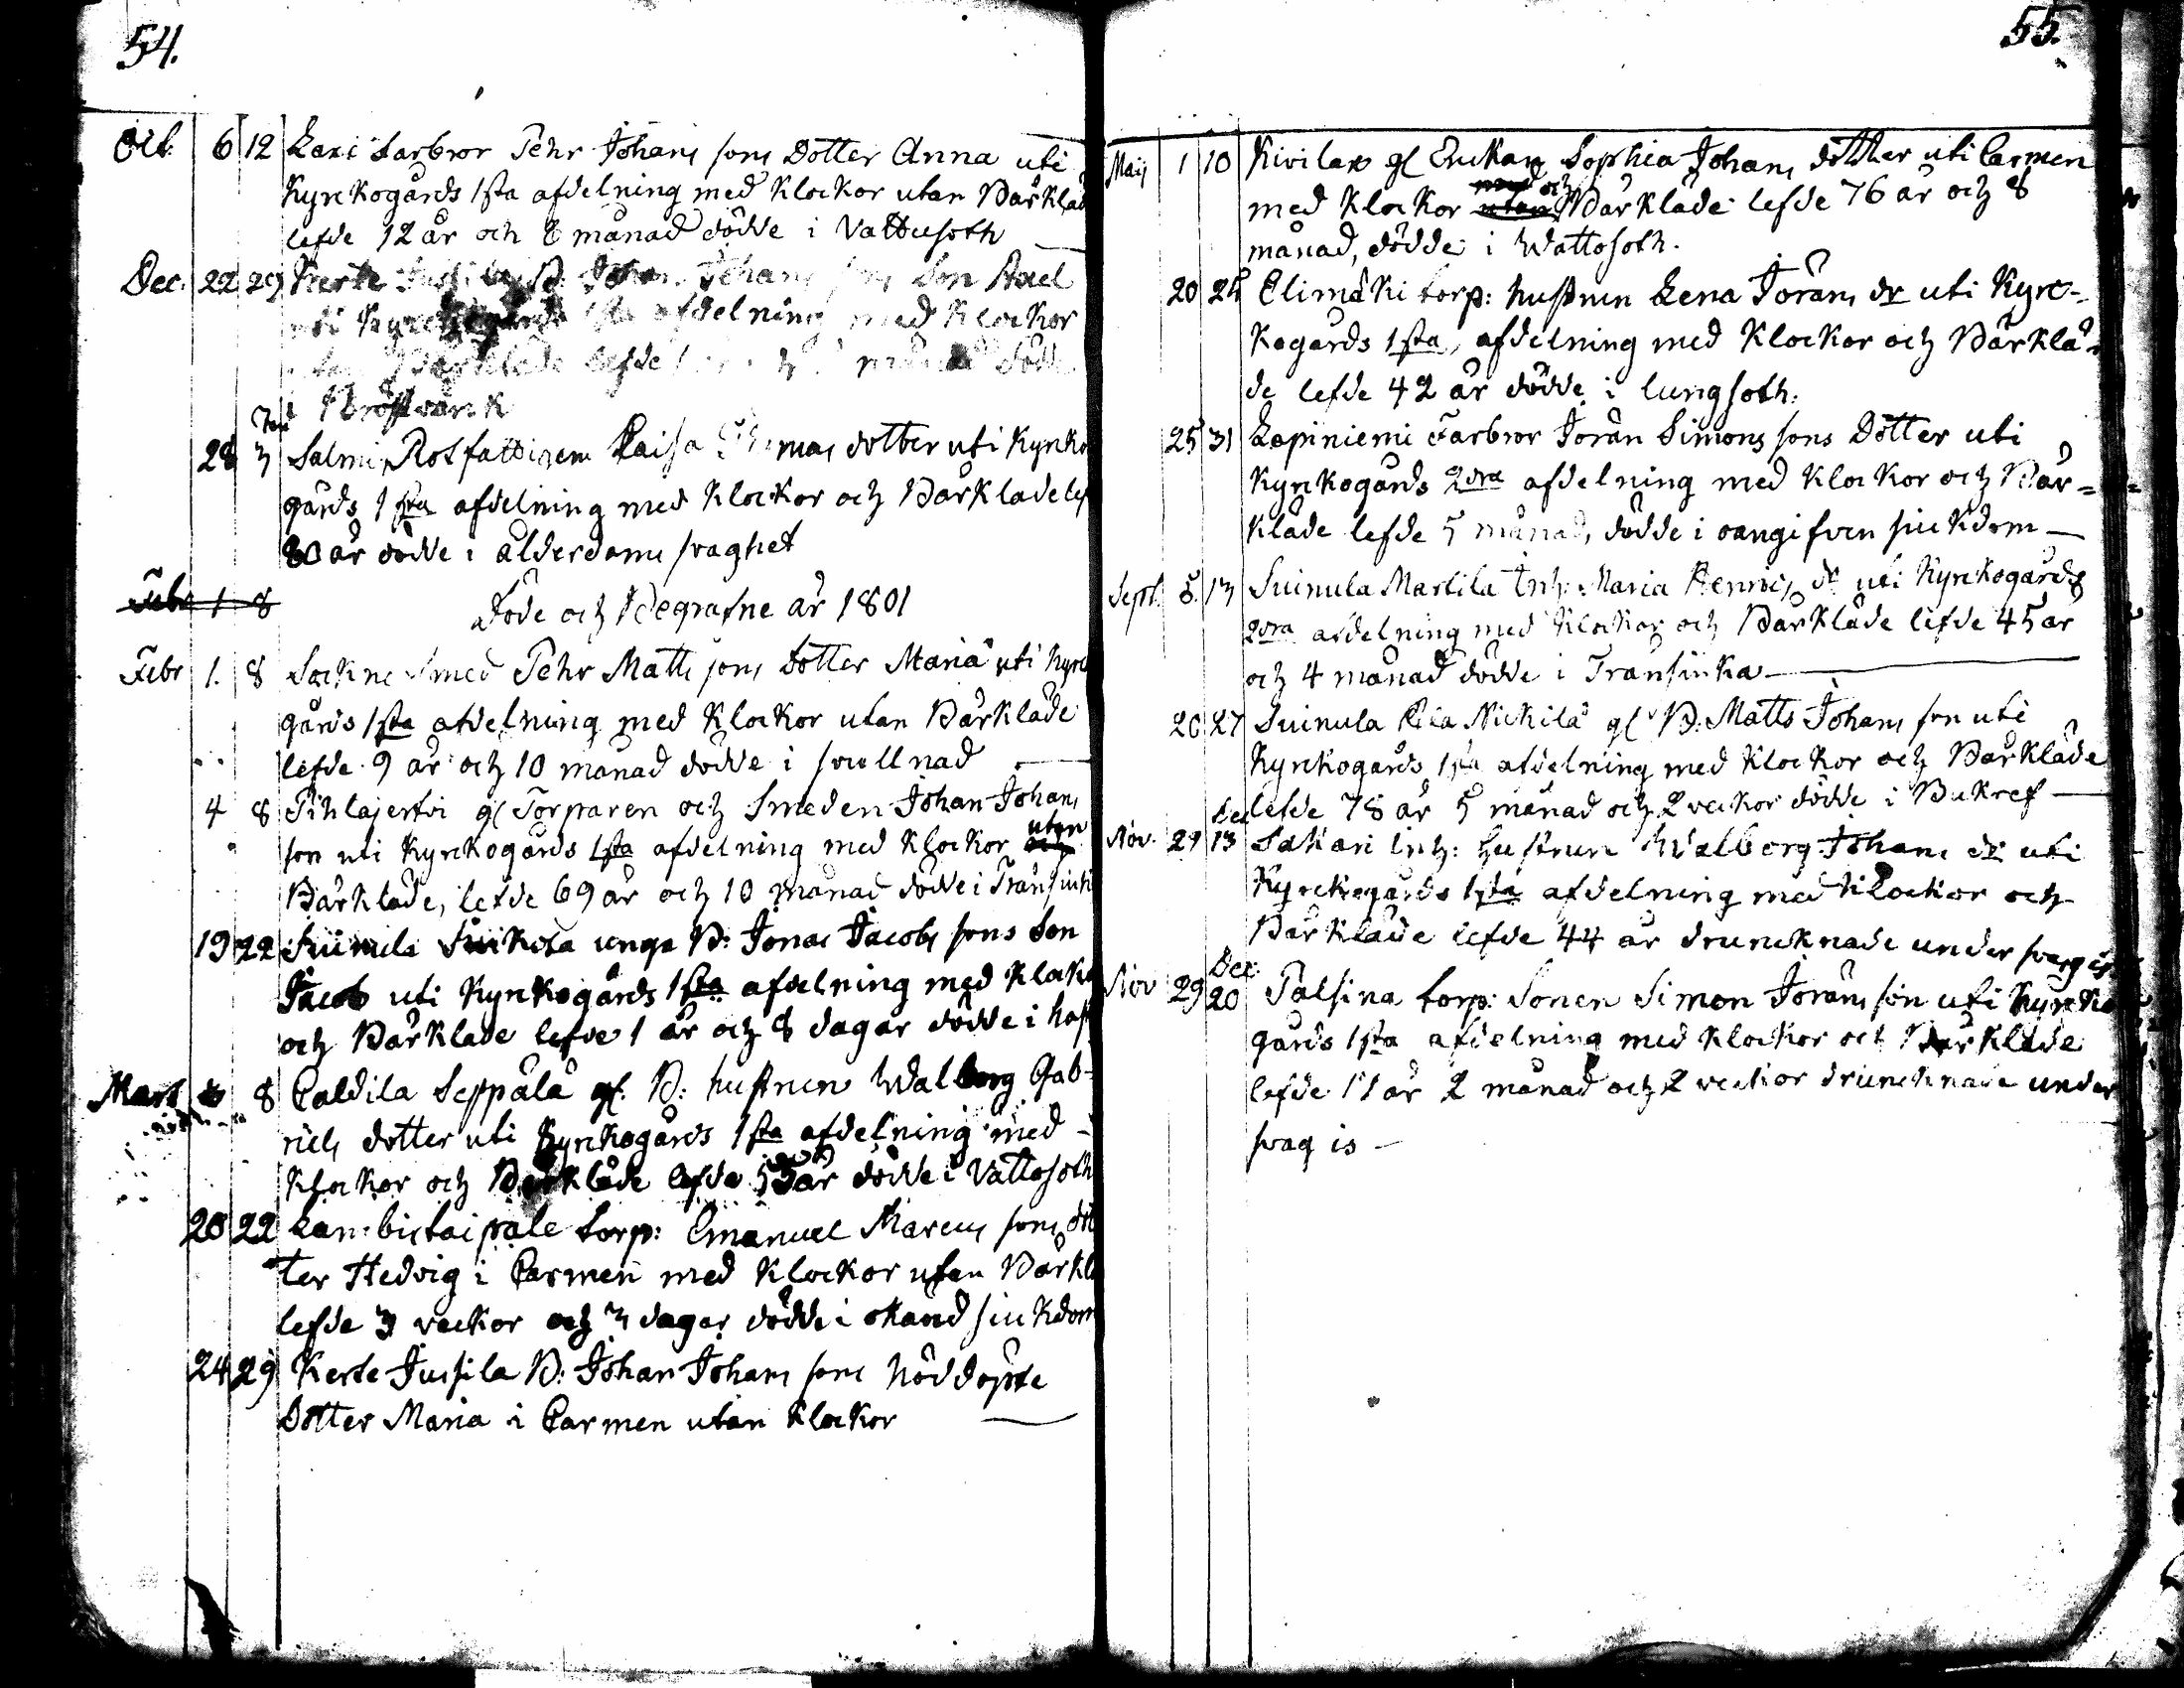 54.
Oct. 6 12 Laxi Farbror Pehr Johans sons Dotter Anna uti
Kyrckogårds 1sta afdelning med Klockor utan Bårkläd
lefde 12 år och 8 månad dödde i Vattusoth
Dec. 22 29 Kerte Johans son Son Axel
uti afdelning med Klockor
Bårkläde lefde månad dödde
i Bröstvärck
28 3 Salmi Rotfattigen Caisa dotter uti Kyrko
gårds 1sta afdelning med Klockor och Bårkläde lef
80 år dödde i ålderdoms svaghet
Febr 1 8
Döde och Begrafne år 1801
Febr 1. 8 Sockne Smed Pehr Matts sons Dotter Maria uti Kyrc
gårds 1sta afdelning med Klockor utan Bårkläde
lefde 9 år och 10 månad dödde i svullnad
4 8 Pihlajerfvi gl Torparen och Smeden Johan Johans
son uti Kyrckogårds 1sta afdelning med Klockor utan och
Bårkläde, lefde 69 år och 10 månad dödde i Transiuk
19 22 Suinula unga B: Jonas Jacobs sons Son
Jacob uti Kyrkogårds 1sta afdelning med Klock
och Bårkläde lefde 1 år och 8 dagar dödde i
Mart 8 Caldila Seppälä gl. B: hustrun Walborg Gab-
riels dotter uti Kyrkogårds 1sta afdelning med
Klockor och Bårkläde lefde 55 år dödde i Vattosoth
20 22 torp: Emanuel Marcus sons dot
ter Hedvig i Carmen med Klockor utan Bårklä
lefde 3 veckor och 3 dagar dödde i okänd siukdom
24 29 Kerte Jussila B: Johan Johans sons Nöddöpte
Dotter Maria i Carmen utan Klockor
55.
Maij 1 10 Kivilax gl Enckan Sophia Johans dotter uti Carmen
med Klockor utan med och Bårkläde lefde 76 år och 8
månad, dödde i Wattosoth.
20 24 Elimäki torp: hustrun Lena Jörans dr uti Kyrc-
kogårds 1sta afdelning med Klockor och Bårklä-
de lefde 42 år dödde i lungsoth.
25 31 Lepiniemi Farbror Jöran Simons sons Dotter uti
Kyrkogårds 2dra afdelning med Klockor och Bår=
kläde lefde 5 månad, dödde i oangifven siukdom
Sept. 8. 13 Suinula Martila Inh: Maria Henrics dr uti Kyrckogårds
2dra afdelning med Klockor och Bårkläde lefde 45 år
och 4 månad dödde i Transiuka
20 27 Suinula Nickilä gl B: Matts Johans son uti
Kyrkogårds 1sta afdelning med Klockor och Bårkläde
lefde 78 år 5 månad och 2 veckor dödde i Bukref
Nov. 29 Dec 13 Sakari Inh: hustrun Walborg Johans dr uti
Kyrckogårds 1sta afdelning med Klockor och
Bårkläde lefde 44 år druncknade under svag is
Nov 29 Dec. 20 Palsina torp: Sonen Simon Jörans son uti Kyrko
gårds 1sta afdelning med Klockor och Bårkläde
lefde 11 år 2 månad och 2 veckor druncknade under
svag is